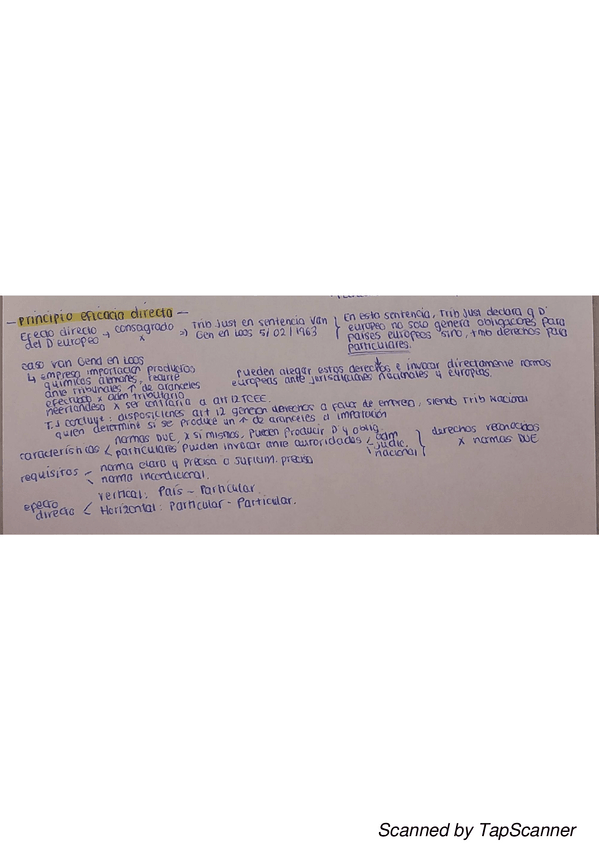 – principio eficacia directa –
Efecto directo → consagrado => Trib Just en sentencia Van
del D europeo x Gen en Loos 5/02/1963
En esta sentencia, Trib Just declara q D'
europeo no solo genera obligaciones para
países europeos sino, tmb derechos para
particulares.
caso Van Gend en Loos
↳ Empresa importación productos
químicos alemanes, recurre
ante tribunales ↑ de aranceles
efectuado x adm tributaria
neerlandesa x ser contraria a art 12 TCEE.
pueden alegar estos derechos e invocar directamente normas
europeas ante jurisdicciones nacionales y europeas.
T.J concluye: disposiciones art 12 generan derechos a favor de empresa, siendo Trib Nacional
quien determina si se produce un ↑ de aranceles a importación
características < normas DUE, x si mismas, pueden producir D y oblig.
particulares pueden invocar ante autoridades < adm
- judic.
nacional
} derechos reconocidos
x normas DUE
requisitos - norma clara y precisa o suficim. precisa
- norma incondicional.
efecto directo < vertical: País - Particular
Horizontal: Particular - Particular.
Scanned by TapScanner